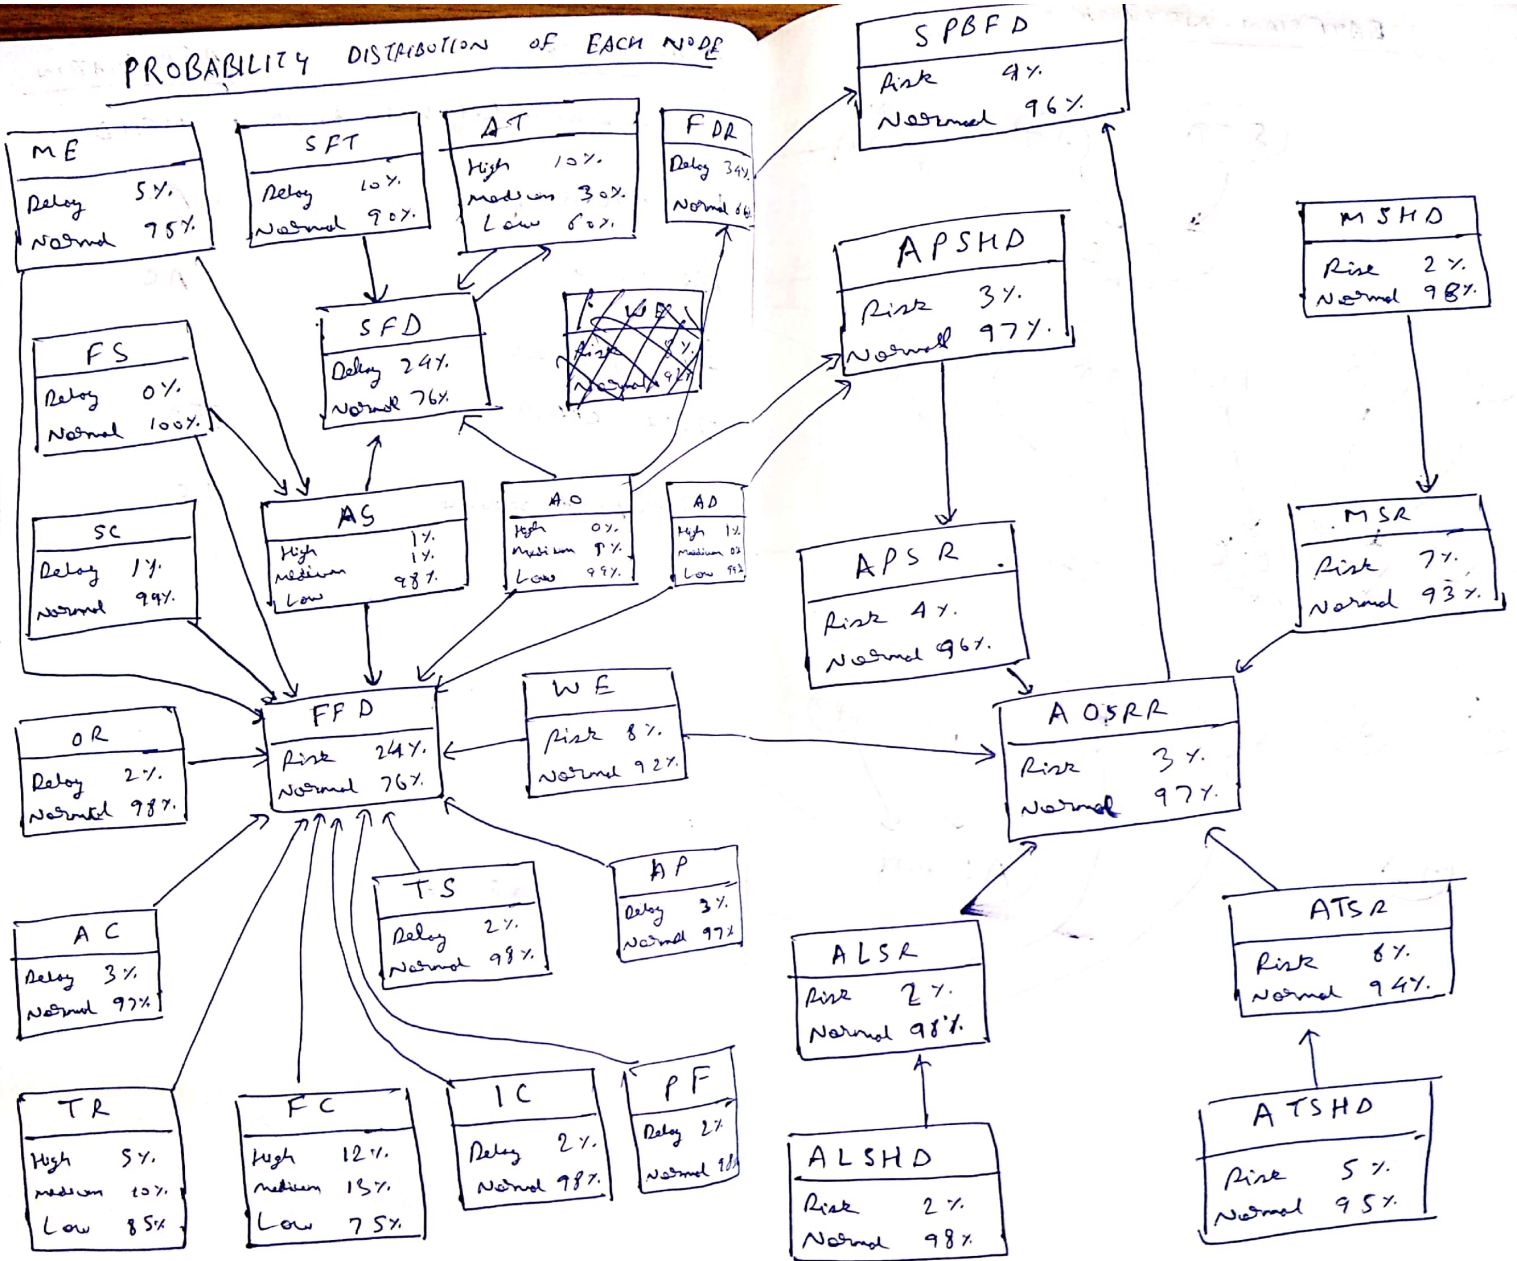 PROBABILITY DISTRIBUTION OF EACH NODE
ME
Delay 5%.
Normal 95%.
SFT
Delay 10%.
Normal 90%.
AT
High 10%.
Medium 30%.
Low 60%.
FDR
Delay 34%
Normal 66
SPBFD
Risk 4%.
Normal 96%.
FS
Delay 0%.
Normal 100%.
SFD
Delay 24%
Normal 76%.
WE
Risk 8%.
Normal 92%
APSHD
Risk 3%.
Normal 97%.
MSHD
Risk 2%.
Normal 98%.
SC
Delay 1%.
Normal 99%.
AS
High 1%.
Medium 1%.
Low 98%.
A.O
High 0%.
Medium 1%.
Low 99%.
AD
High 1%
Medium 0%
Low 99%
APSR
Risk 4%.
Normal 96%.
MSR
Risk 7%.
Normal 93%.
OR
Delay 2%.
Normal 98%.
FFD
Risk 24%.
Normal 76%.
WE
Risk 8%.
Normal 92%.
AOSRR
Risk 3%.
Normal 97%.
AC
Delay 3%.
Normal 97%
TS
Delay 2%.
Normal 98%.
AP
Delay 3%.
Normal 97%
ALSR
Risk 2%.
Normal 98%.
ATSR
Risk 6%.
Normal 94%.
TR
High 5%.
Medium 10%.
Low 85%
FC
High 12%.
Medium 13%.
Low 75%.
IC
Delay 2%.
Normal 98%.
PF
Delay 2%
Normal 98%
ALSHD
Risk 2%.
Normal 98%.
ATSHD
Risk 5%.
Normal 95%.